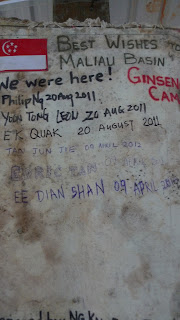 BEST WISHES TO
MALIAU BASIN
We were here! GINSEN
CAM
Philip Ng 20 Aug 2011
YOUN TONG 20 AUG 2011
E.K QUAK 20 AUGUST 2011
TAN JUN JIE 09 APRIL 2012
ERIC TAN
EE DIAN SHAN 09 APRIL 2012
by NG